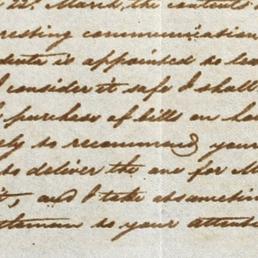 22. March, the contents
resting communication
dente is appointed to lea
I consider it safe I shall
purchase of bills on
ly to recommend your
to deliver the one for M
it, and I take
tleman to your attent